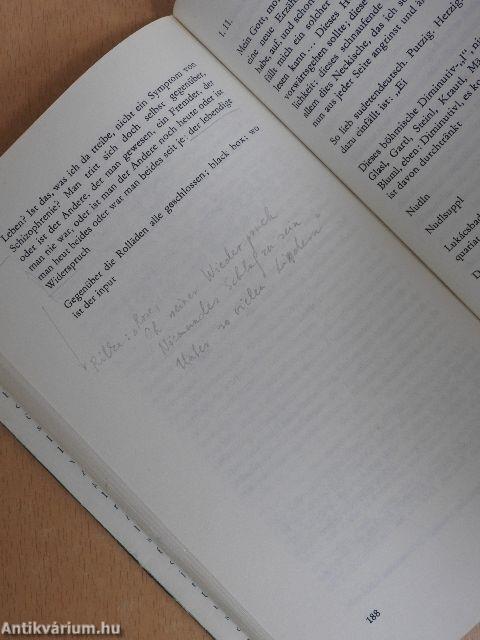 Leben? Ist das, was ich da treibe, nicht ein Symptom von
Schizophrenie? Man tritt sich doch selbst gegenüber,
oder ist der Andere, der man gewesen, ein Fremder, der
man nie war, oder ist man der Andere noch heute oder ist
man heut beides oder war man beides seit je: der lebendige
Widerspruch
Gegenüber die Rolläden alle geschlossen; black box; wo
ist der input
Rilke: Rose,
Oh reiner Widerspruch
Niemandes Schlaf zu sein
Unter so vielen Lidern
188
1.11.
Mein Gott,
eine neue Erzäh
habe, auf und schon
fällt mich ein solcher
lesen kann... Dieses H
vorwärtsgehen sollte; diese
lichkeit: dieses schnaufende
allem dies Neckische, das ich
nun aus jeder Seite angrinst und
dazu einfällt ist: „Ei
So lieb sudetendeutsch. Putzig. Herzig
Dieses böhmische Diminutiv-„l“, ni
Glasl, Gartl, Steinl, Krautl, Mä
Bluml, eben: Diminutivl, es ko
ist davon durchtränkt
Nudln
Nudlsuppl
Lukácsbad
quariat
Antikvárium.hu